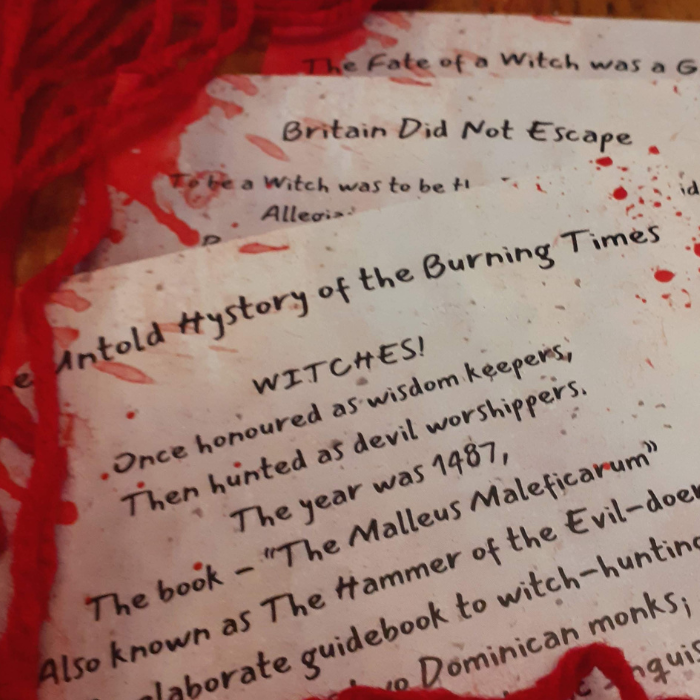 The Fate of a Witch was a G
Britain Did Not Escape
To be a Witch was to be
id
Untold Hystory of the Burning Times
WITCHES!
Once honoured as wisdom keepers,
Then hunted as devil worshippers.
The year was 1487,
The book – "The Malleus Maleficarum"
Also known as The Hammer of the Evil-doer
laborate guidebook to witch-hunting
Dominican monks;
nquis